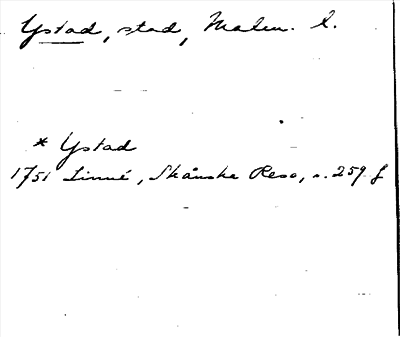 Ystad, stad, Malm. l.
* Ystad
1751 Linné, Skånska Resa, s. 259 f